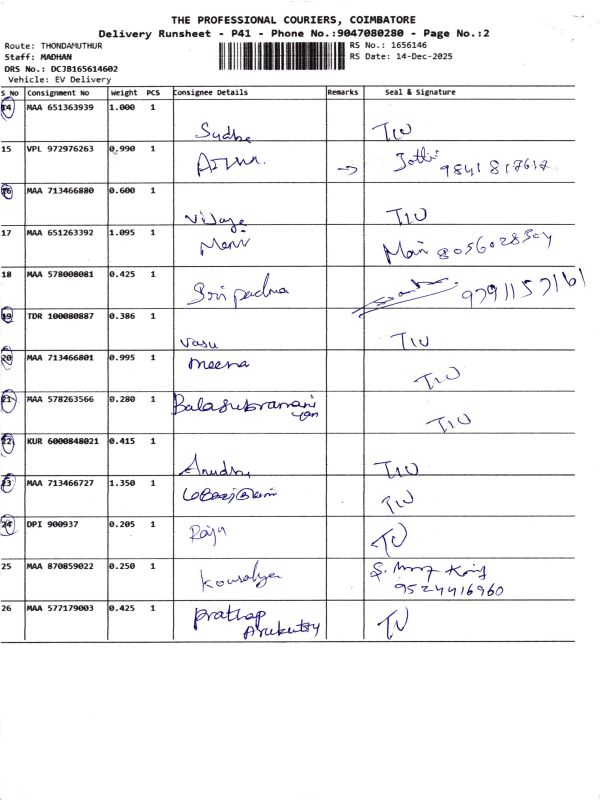 THE PROFESSIONAL COURIERS, COIMBATORE
Delivery Runsheet - P41 - Phone No.:9047080280 - Page No.:2
Route: THONDAMUTHUR
Staff: MADHAN
DRS No.: DCJB165614602
Vehicle: EV Delivery
RS No.: 1656146
RS Date: 14-Dec-2025
S_No Consignment No Weight PCS Consignee Details Remarks Seal & Signature
14 MAA 651363939 1.000 1 Sudha
15 VPL 972976263 0.990 1 → Jothi 9841817617
16 MAA 713466880 0.600 1 Vijaya
17 MAA 651263392 1.095 1 Mani Mani 8056028504
18 MAA 578008081 0.425 1 Sri padma 9791157161
19 TDR 100080887 0.386 1 Vasu
20 MAA 713466801 0.995 1 meena
21 MAA 578263566 0.280 1 Balasubramani
yan
22 KUR 6000848021 0.415 1
23 MAA 713466727 1.350 1
24 DPI 900937 0.205 1 Raju
25 MAA 870859022 0.250 1 Kousalya
9524416960
26 MAA 577179003 0.425 1 Prathap
Arukutty